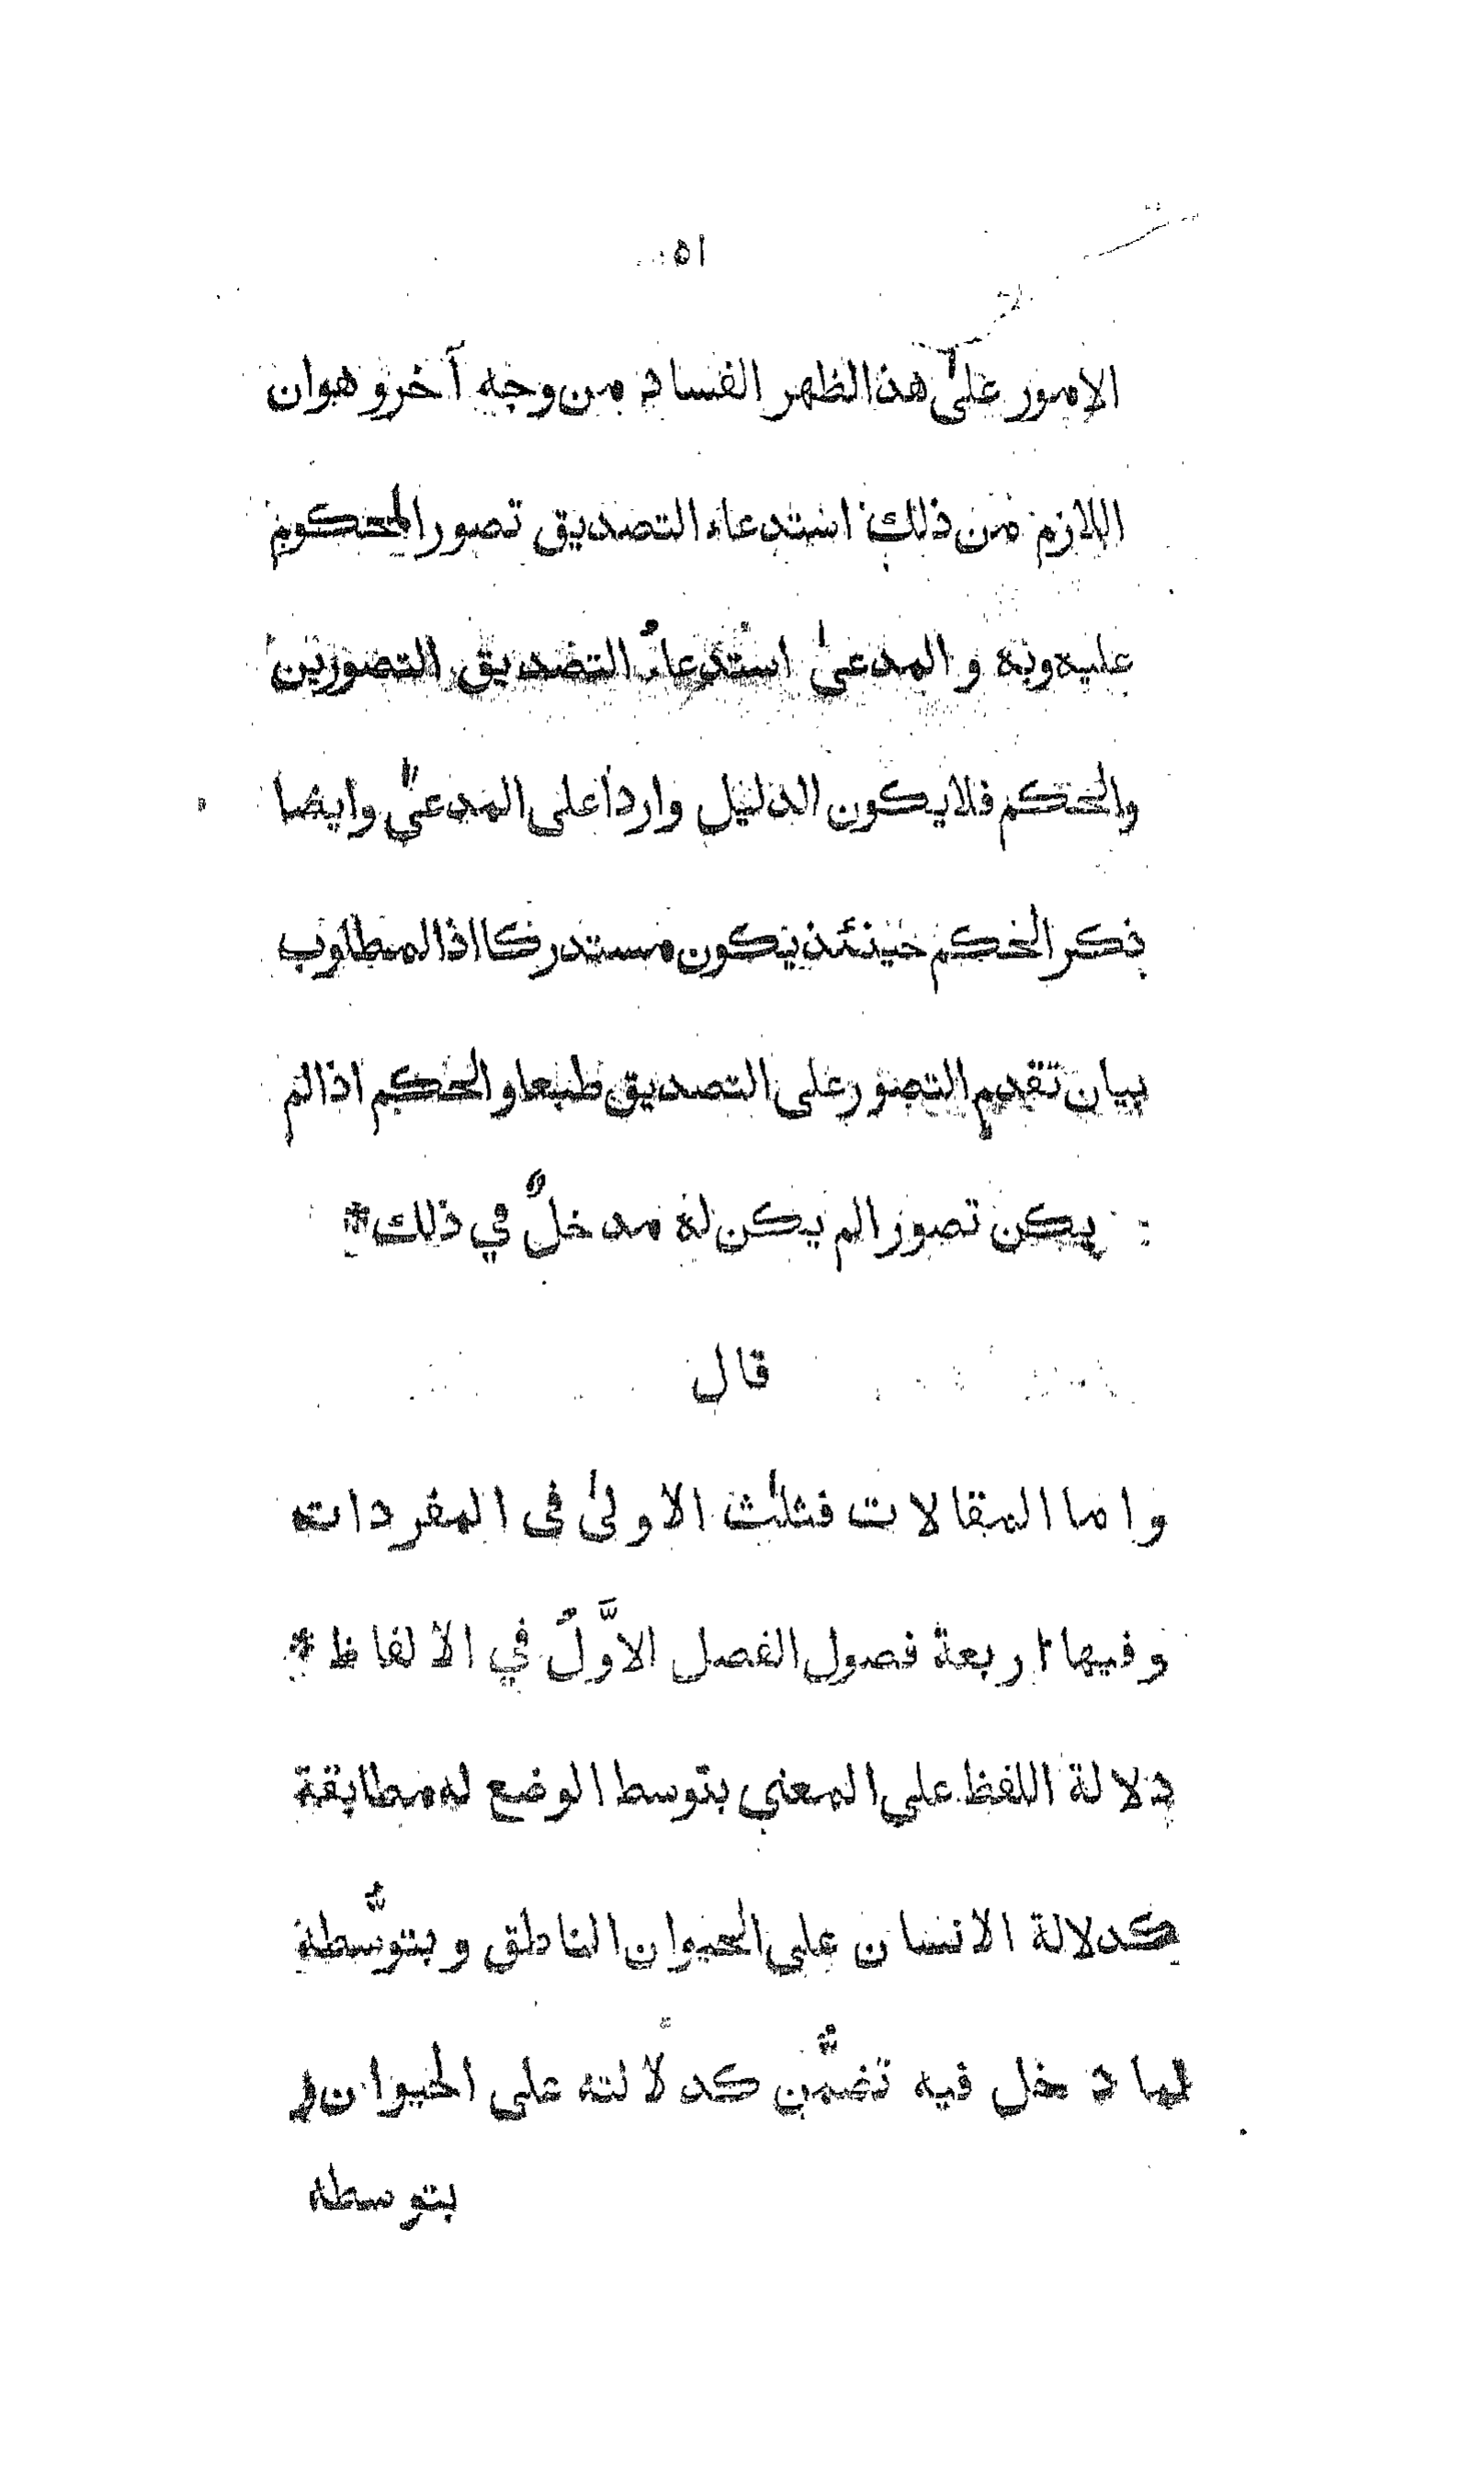 ٥١
الامور علىٰ هذا لظهر الفساد من وجه آخر و هو ان
اللازم من ذلك استدعاء التصديق تصور المحكوم
عليه وبه و المدعىٰ استدعاءُ التصديق التصورين
والحكم فلا يكون الدليل واردا على المدعىٰ وايضا
ذكر الحكم حينئذ يكون مستدركا اذ المطلوب
بيان تقدم التصور على التصديق طبعا والحكم اذا لم
يكن تصور الم يكن له مدخلٌ في ذلك *
قال
واما المقالات فثلٰث الاولىٰ فى المفردات
وفيها اربعة فصول الفصل الاوَّلُ في الالفاظ *
دلالة اللفظ على المعنى بتوسط الوضع له مطابقة
كدلالة الانسان على الحيوان الناطق و بتوسُّطه
لما دخل فيه تضمُّن كدلالته على الحيوان و
بتوسطه